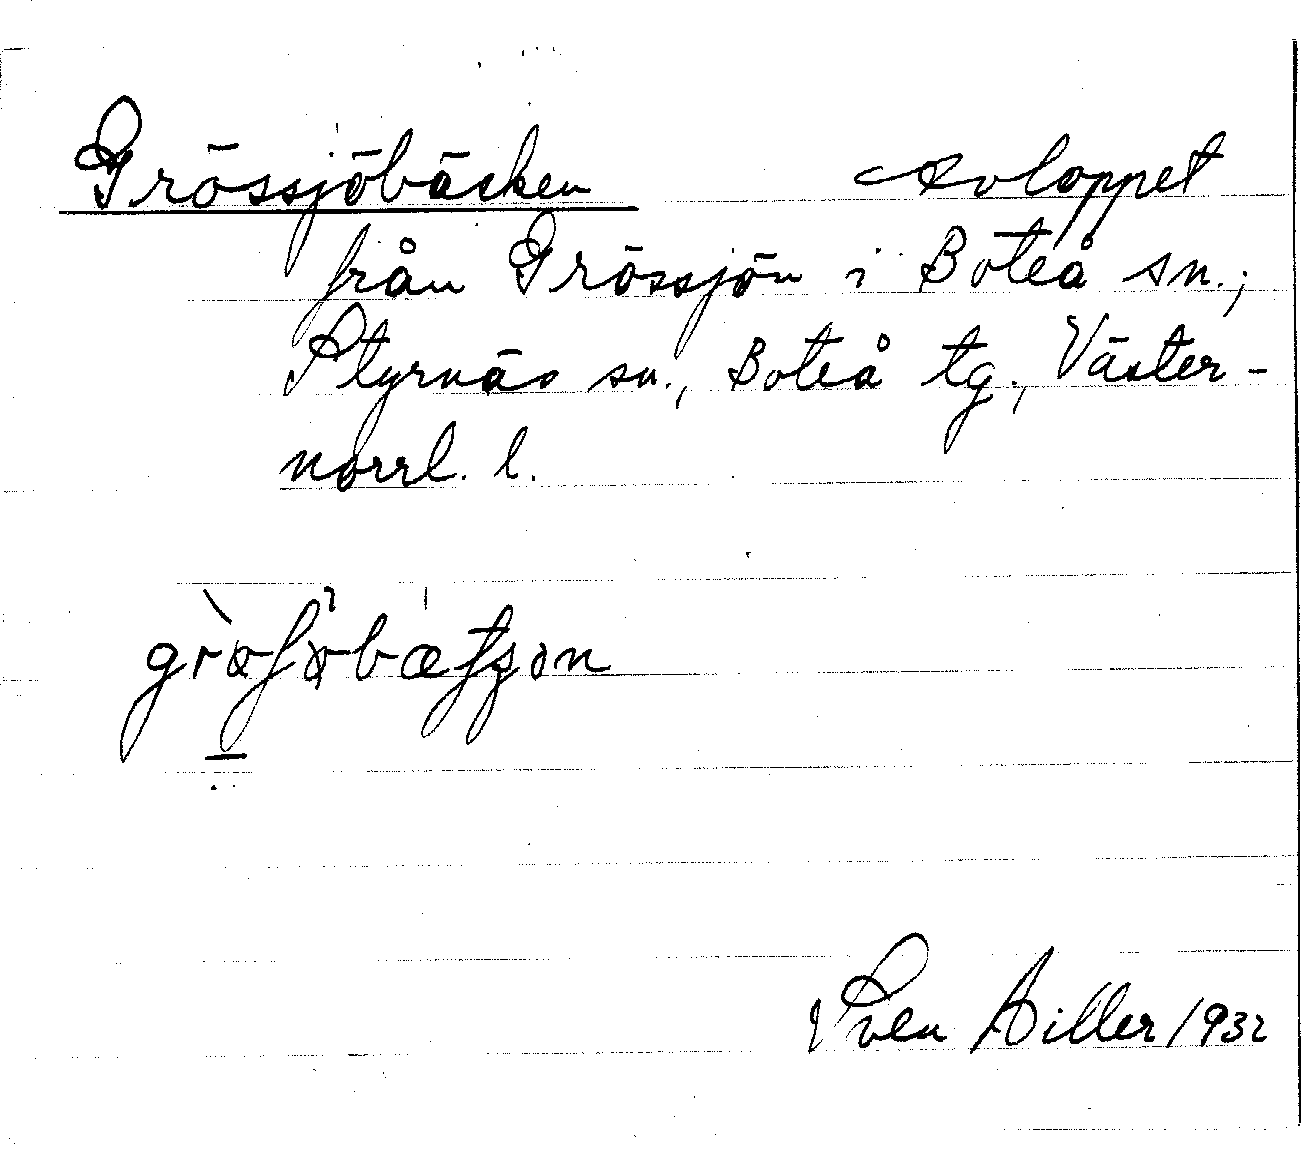 Grössjöbäcken Avloppet
från Grössjön i Boteå sn.,
Styrnäs sn., Boteå tg., Väster-
norrl. l.
Sven Hiller 1932